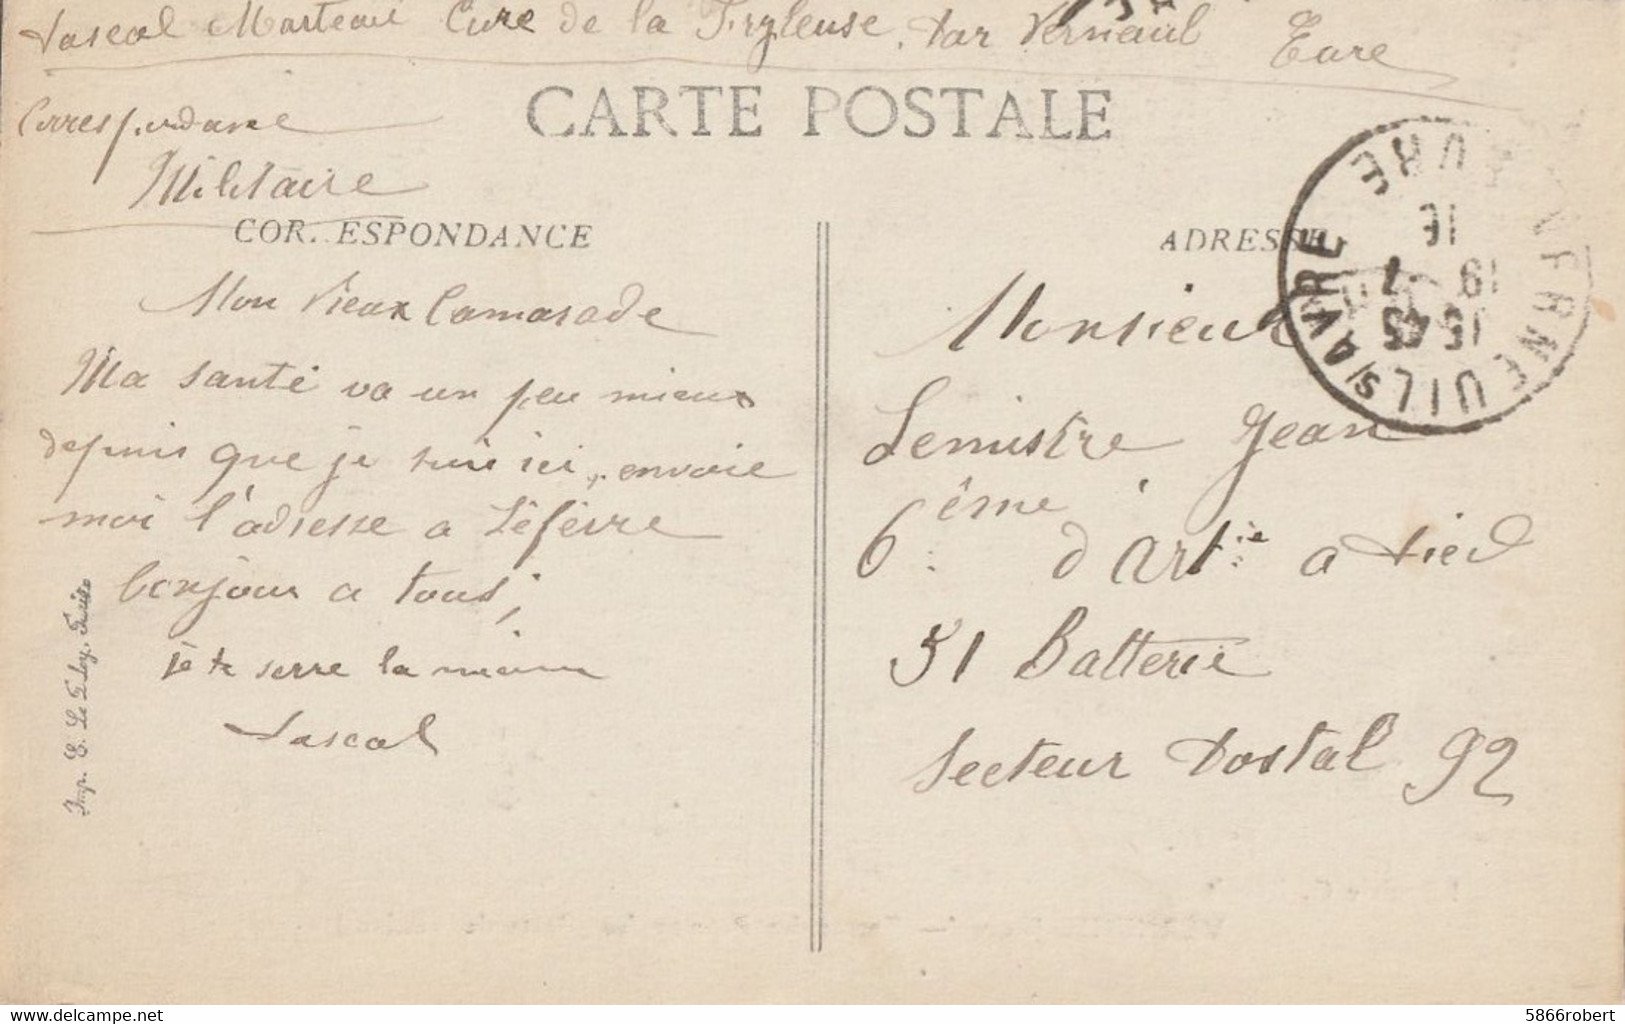 Pascal Marteau Cure de la Fryleuse. par Verneuil Eure
Correspondance
Militaire
CARTE POSTALE
CORRESPONDANCE
ADRESSE
VERNEUIL S/AVRE EURE
15 45
19 - 7
16
Mon vieux Camarade
Ma santé va un peu mieux
depuis que je suis ici, envoie
moi l'adresse a Léfèvre
bonjour a tous,
je te serre la main
Pascal
Imp. E. Le Deley, Paris
Monsieur
Lemistre Jean
6ème d'Artie a pied
51 Batterie
Secteur Postal 92
delcampe.net
5866robert